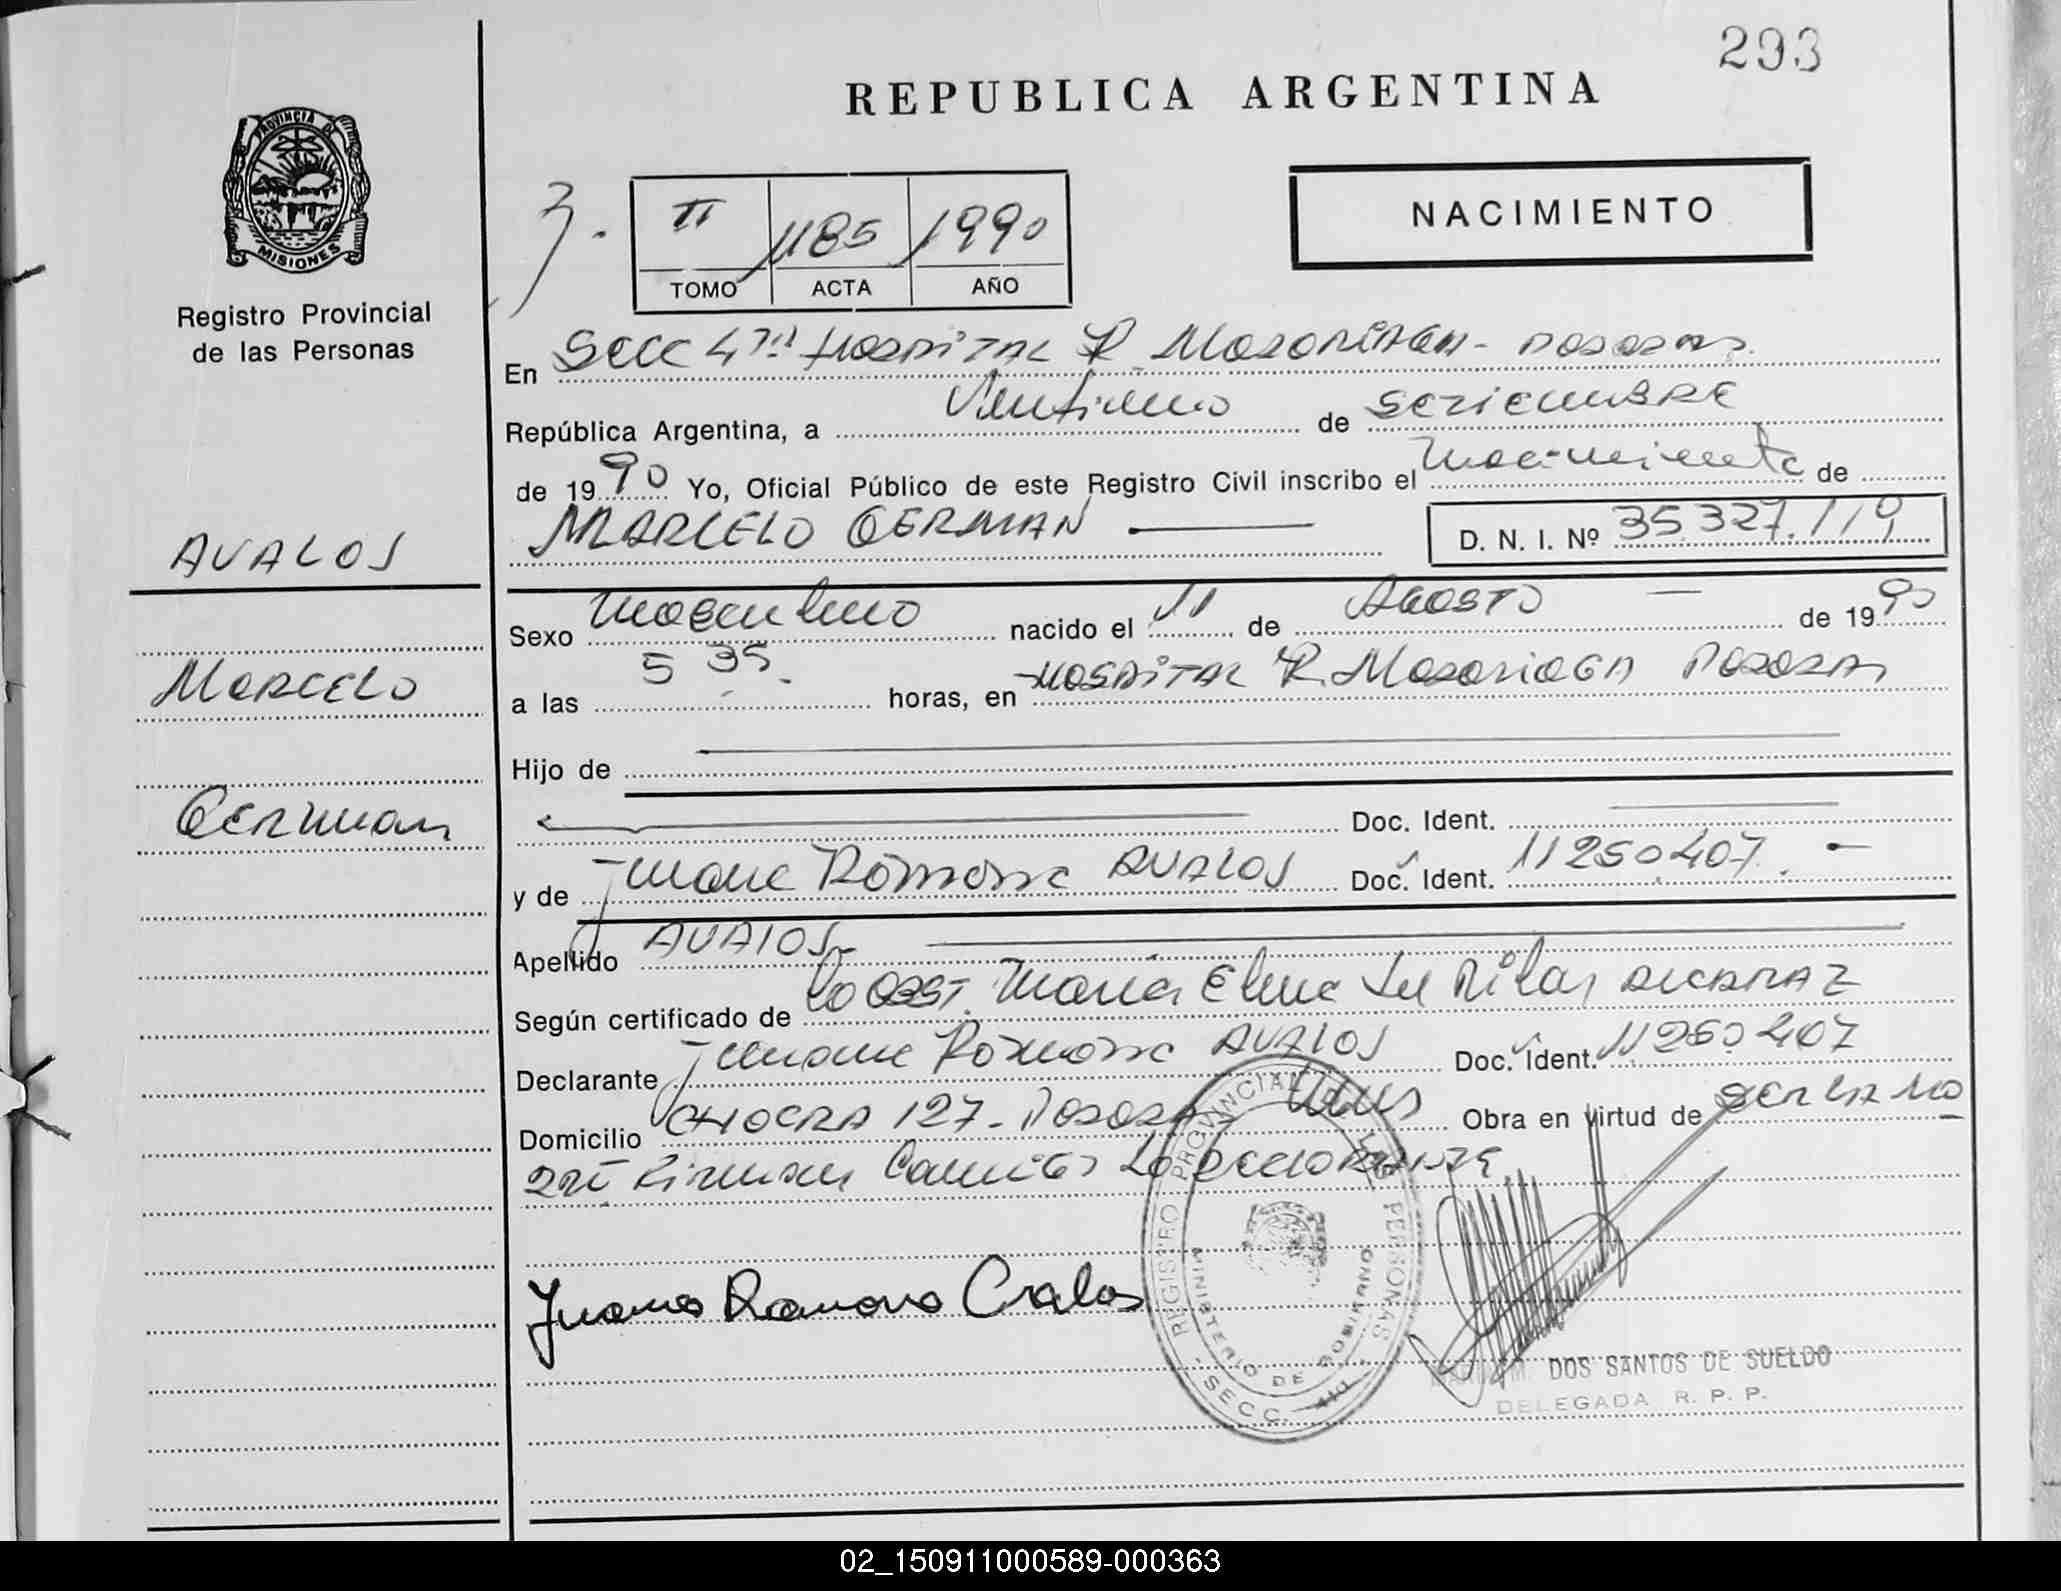 293
REPUBLICA ARGENTINA
PROVINCIA DE
MISIONES
Registro Provincial
de las Personas
3.
II 1185 1990
TOMO ACTA AÑO
NACIMIENTO
En Secc 4ta Hospital R. Madariaga - Posadas
República Argentina, a Veintiuno de SETIEMBRE
de 1990 Yo, Oficial Público de este Registro Civil inscribo el nacimiento de
MARCELO GERMAN
D. N. I. Nº 35.327.119
AVALOS
MARCELO
GERMAN
Sexo masculino nacido el 11 de AGOSTO de 1990
a las 5 35. horas, en HOSPITAL R. Madariaga POSADAS
Hijo de
Doc. Ident.
y de Juana Ramona AVALOS Doc. Ident. 11250.407.
Apellido AVALOS
Según certificado de la OBST. María Elena del Pilar ALCARAZ
Declarante Juana Ramona AVALOS Doc. Ident. 11250407
Domicilio CHACRA 127 - POSADAS Obra en virtud de SER LA MA
Juana Ramona Avalos
REGISTRO PROVINCIAL DE LAS PERSONAS
MINISTERIO DE GOBIERNO
SECC. 4ta
DOS SANTOS DE SUELDO
DELEGADA R. P. P.
02_150911000589-000363